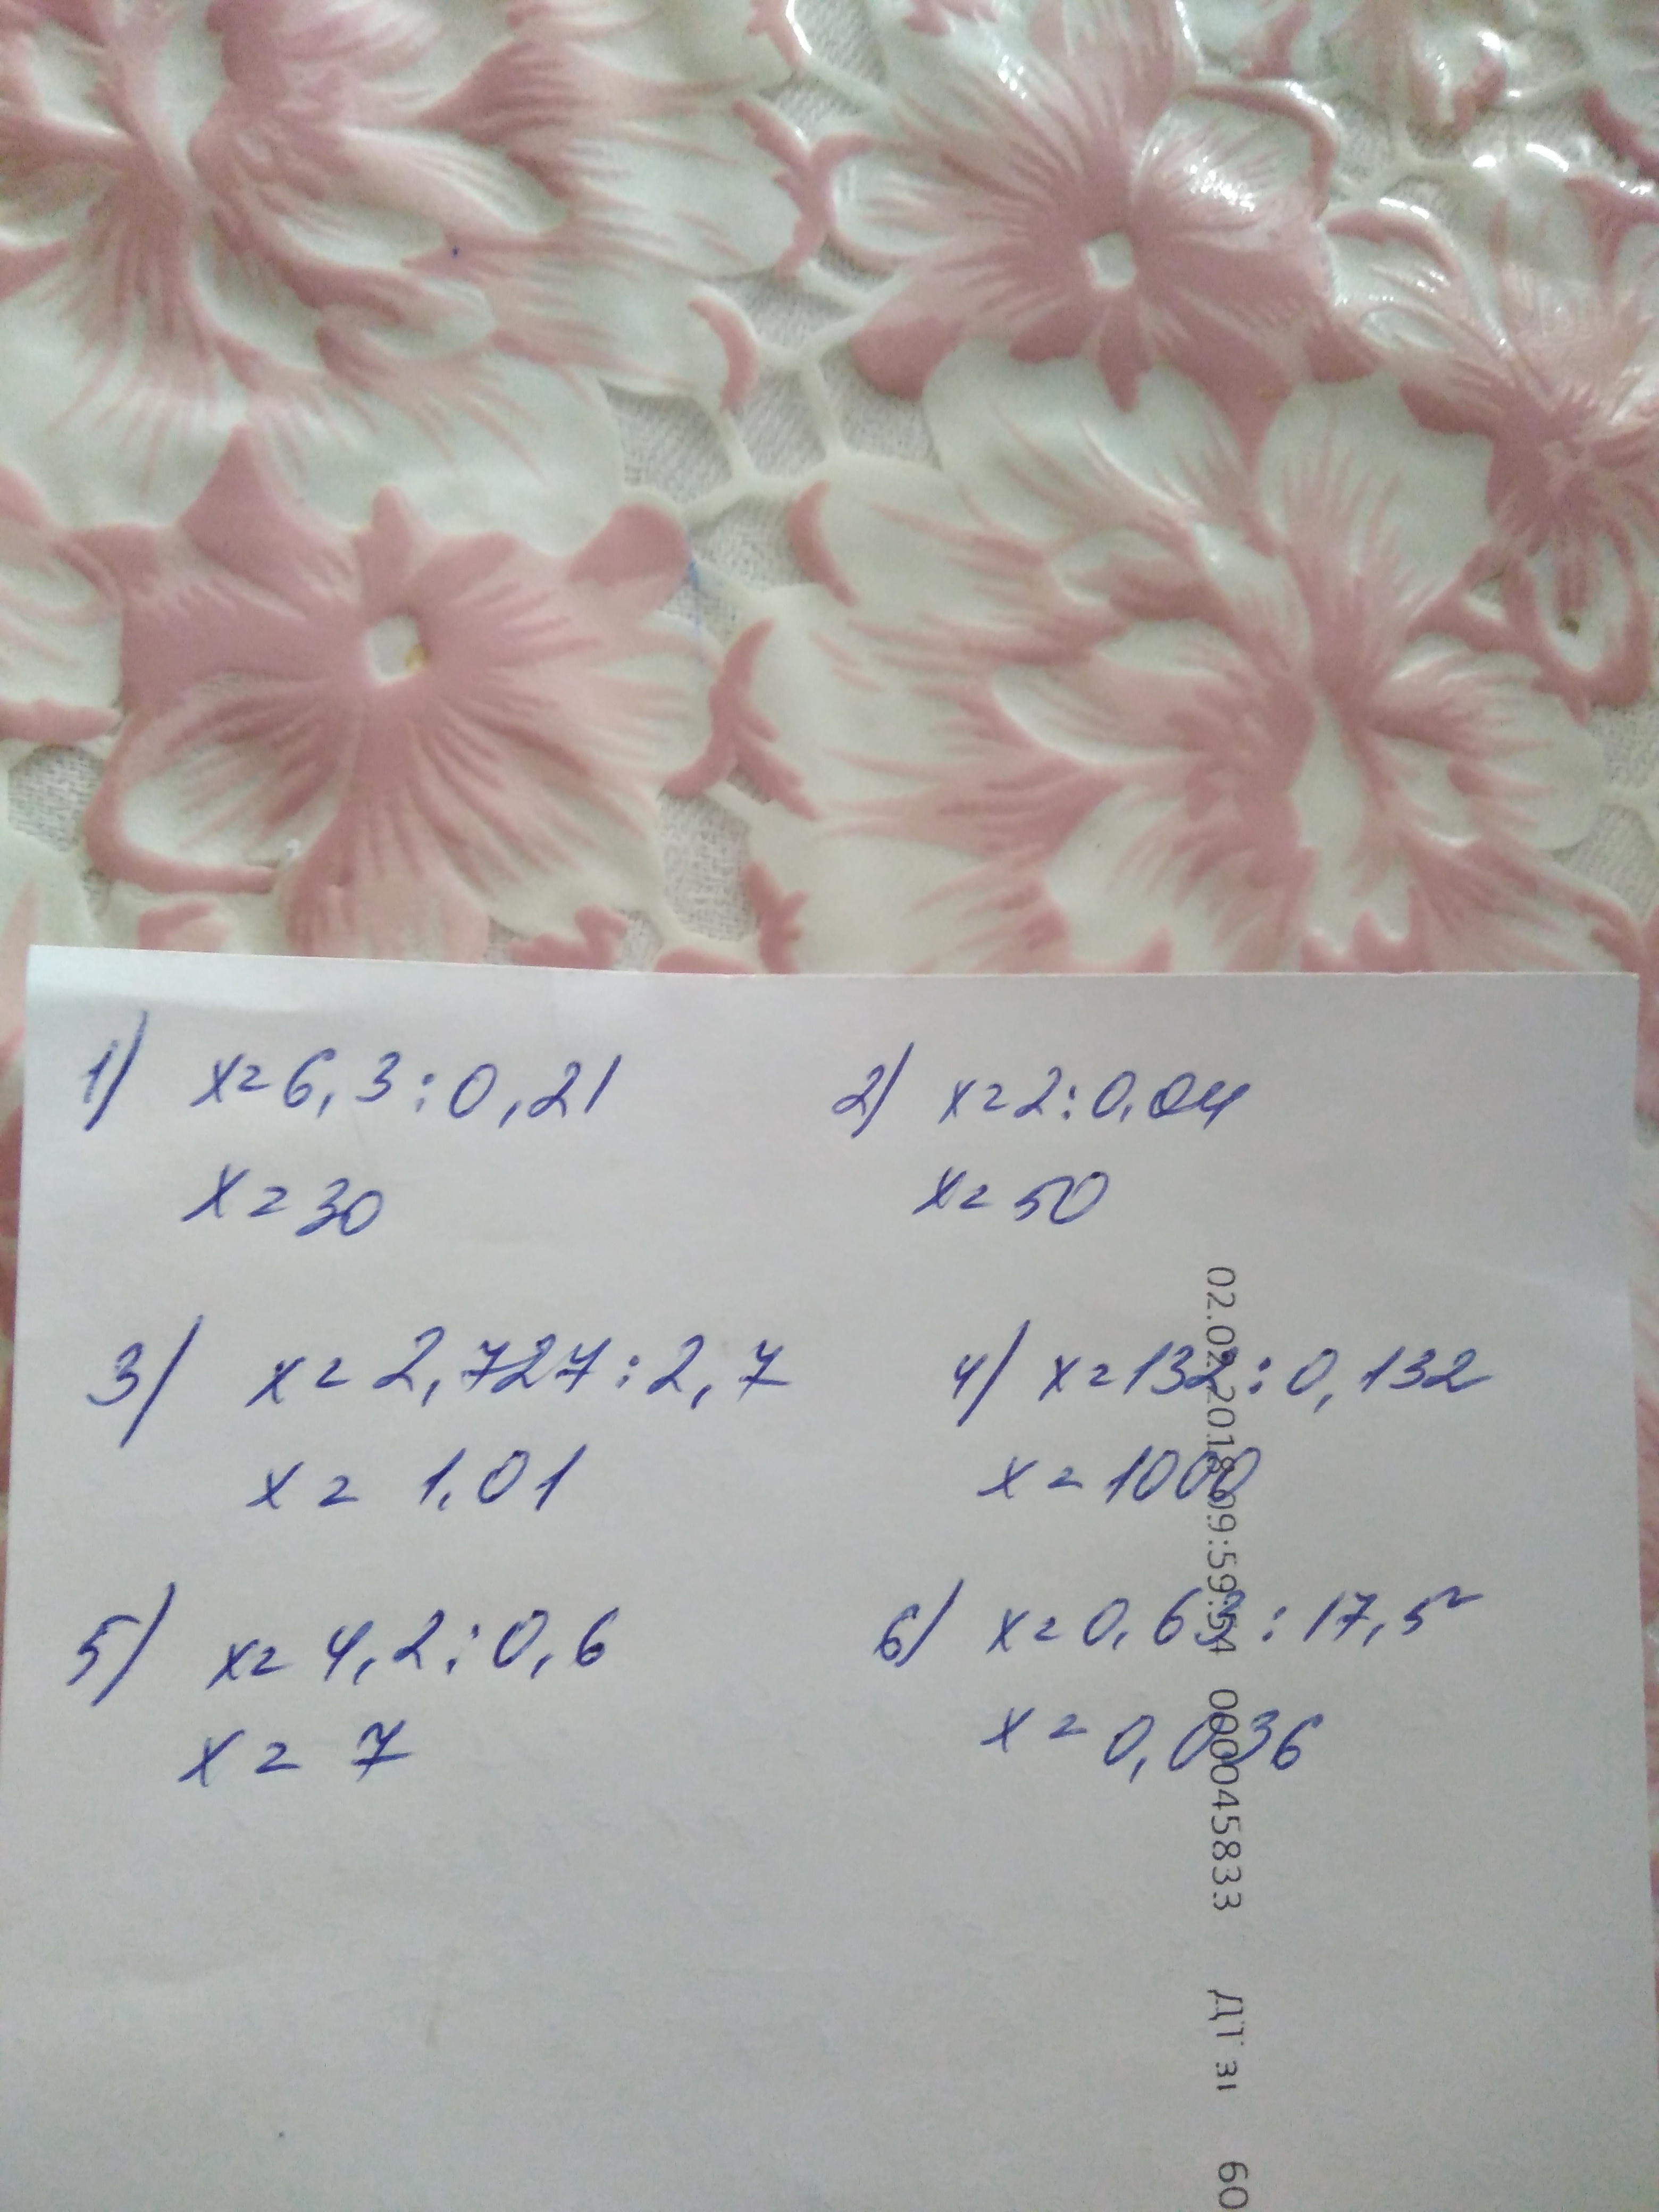 1) x=6,3:0,21
x=30
2) x=2:0,04
x=50
3) x=2,727:2,7
x=1,01
4) x=132:0,132
x=1000
5) x=4,2:0,6
x=7
6) x=0,63:17,5
x=0,036
02.02.2018 09:59:54 00045833 ДТ 31 60